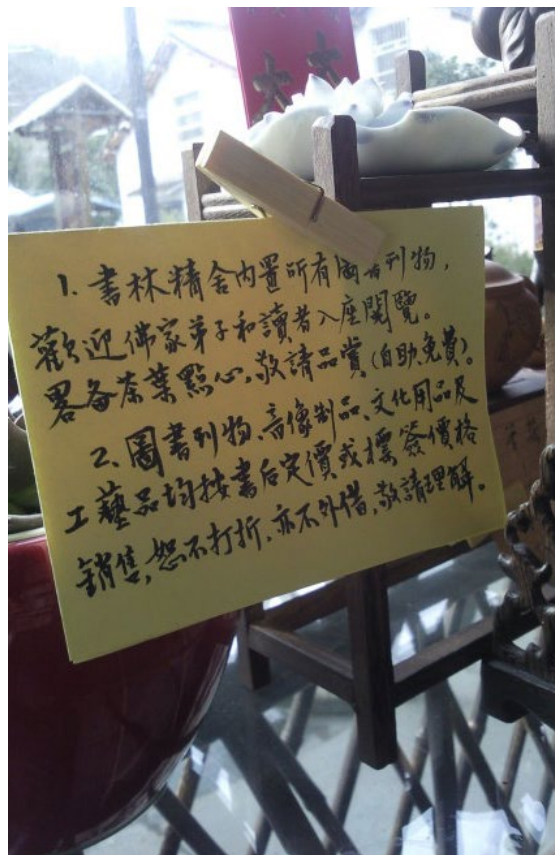 大大
1. 書林精舍内置所有圖書刊物,
歡迎佛家弟子和讀者入座閱覽。
畧备茶葉點心,敬請品賞(自助免費)。
2、圖書刊物、音像制品、文化用品及
工藝品均按書后定價或標簽價格
銷售,恕不打折,亦不外借,敬請理解。